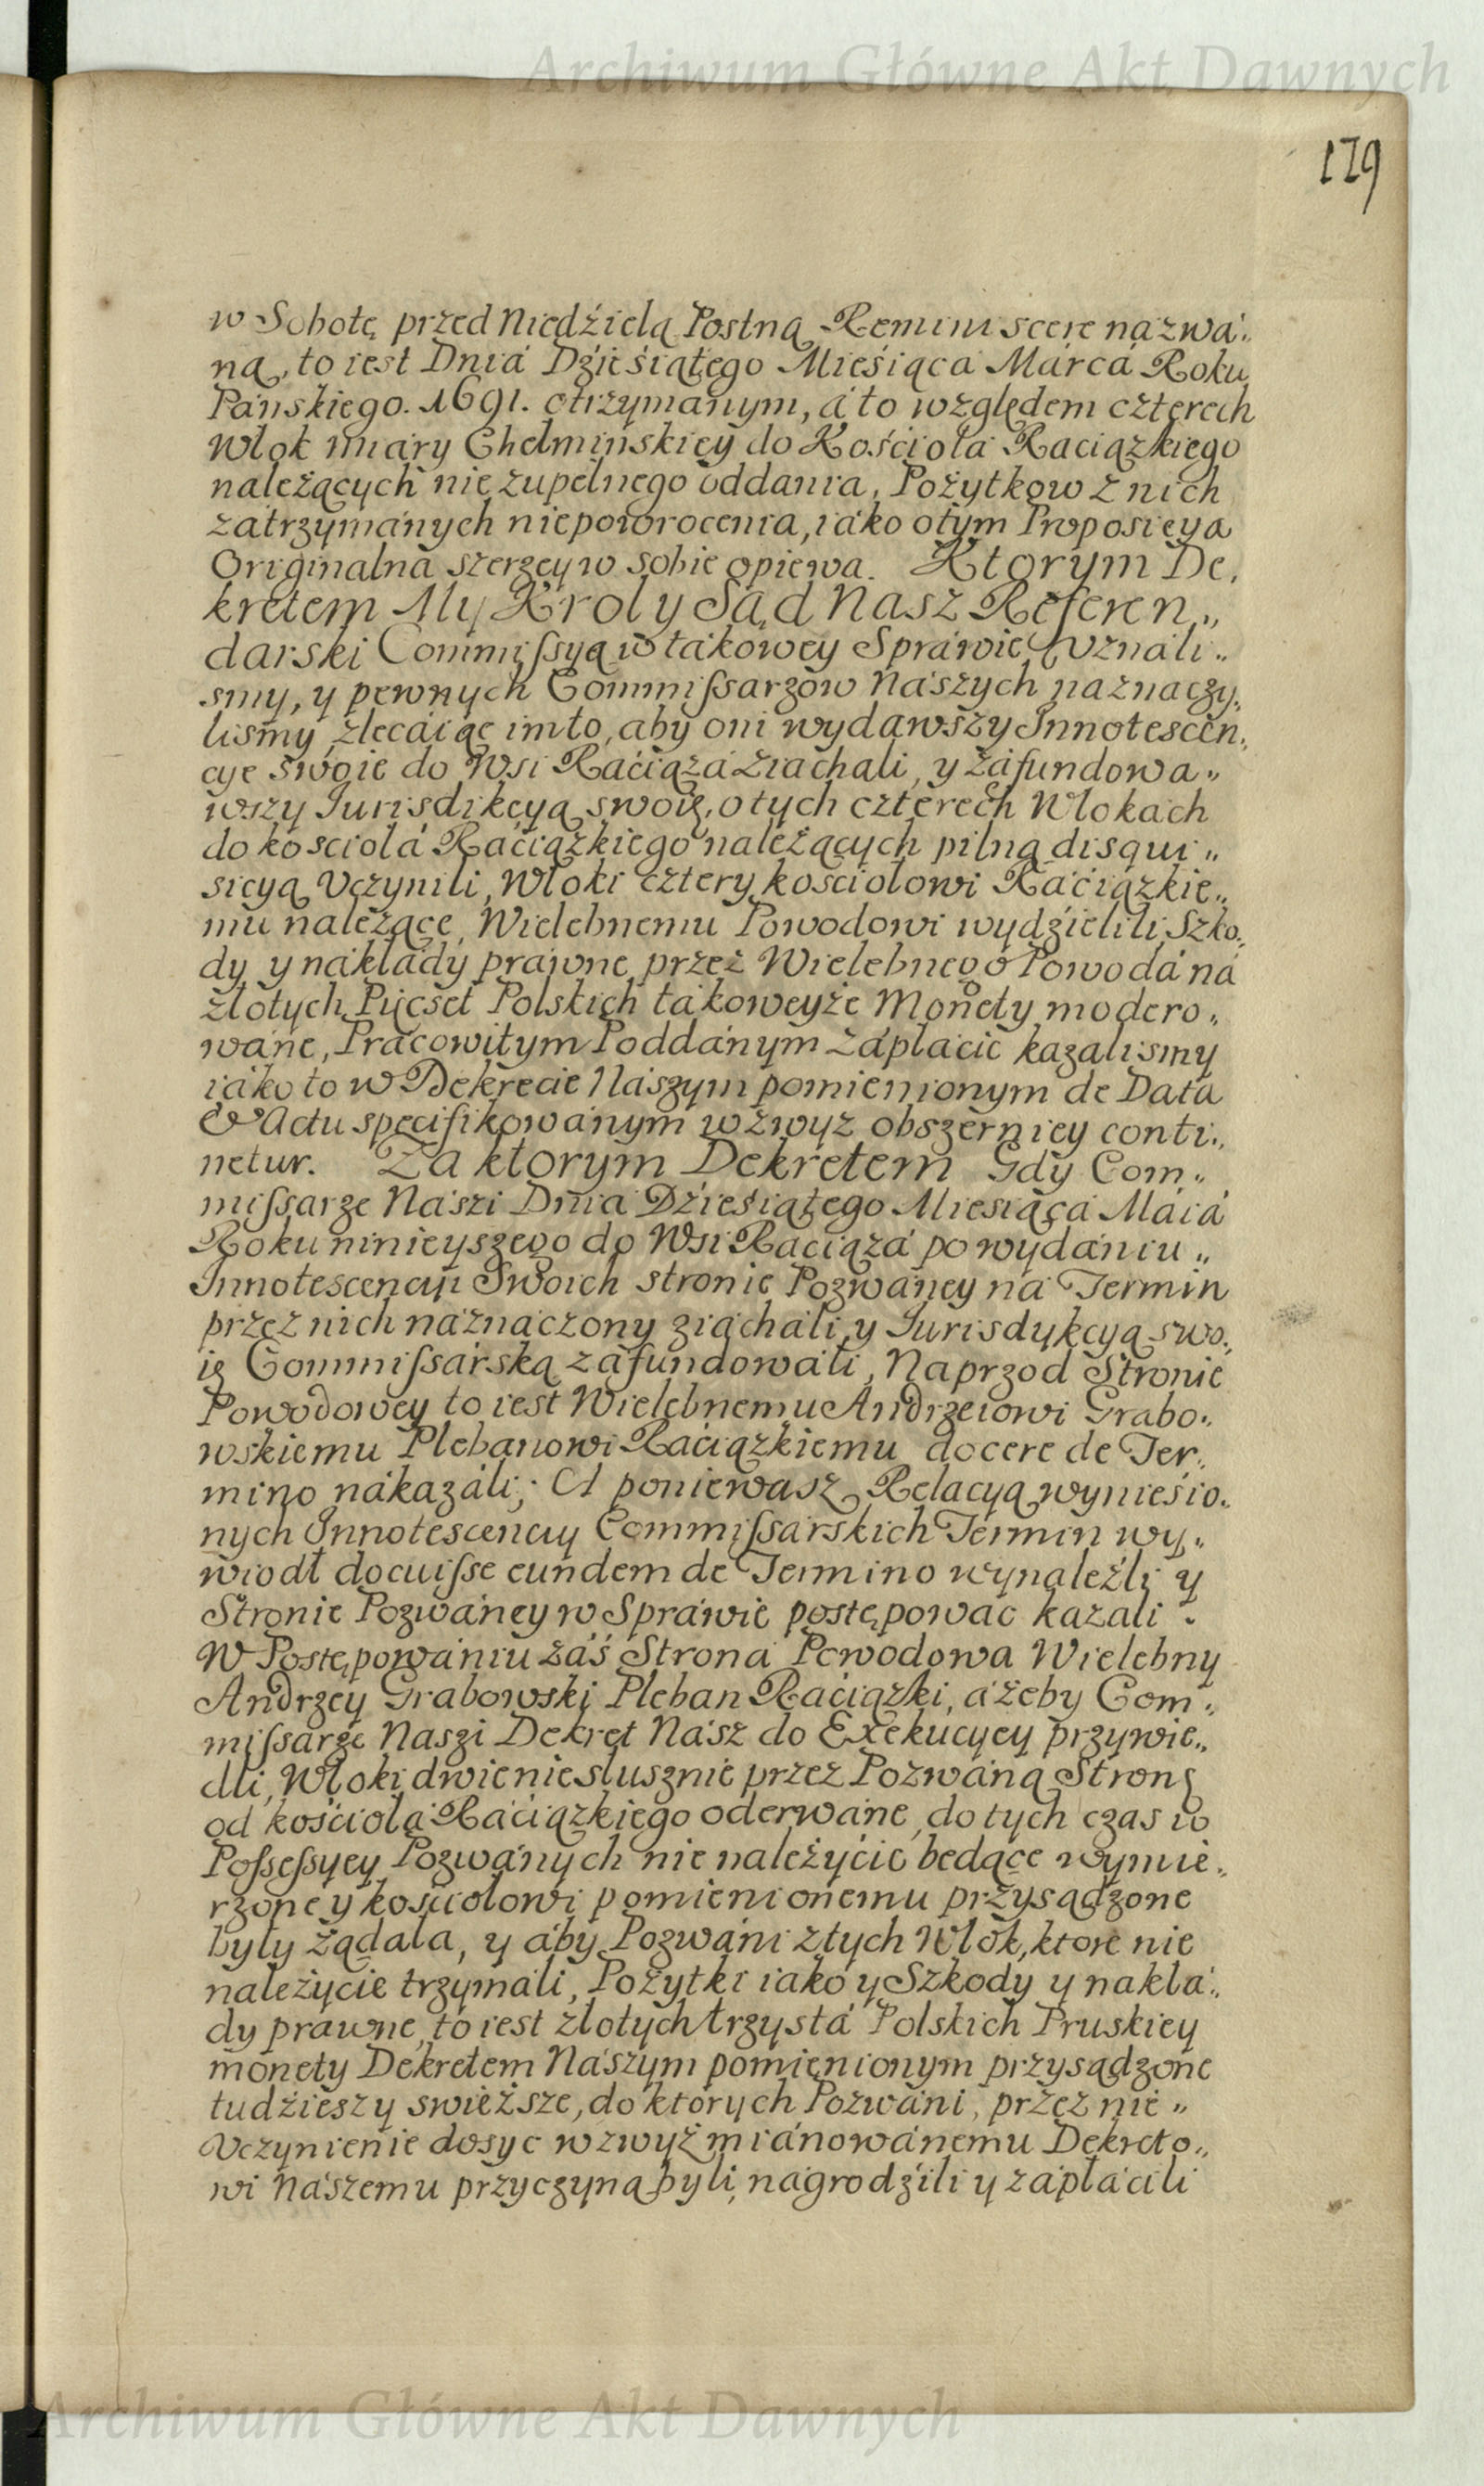 Archiwum Główne Akt Dawnych
179
w Sobotę przed Niedźielą Postną Reminiscere nazwá„
ną, to iest Dniá Dźieśiątego Mieśiąca Márcá Roku
Páńskiego. 1691. otrzymánym, á to względem czterech
Włok miary Chełmińskiey do Kośćiołá Raciązkiego
należących nie zupełnego oddania, Pożytkow z nich
zátrzymánych niepowrocenia, iáko o tym Proposicya
Originalna szerzey w sobie opiewa. Ktorym De„
kretem My Krol y Sąd Nasz Referen„
darski Commissyą w tákowey Spráwie Vználi„
smy, y pewnych Commissarzow Nászych náznaczy„
lismy, zlecáiąc im to, aby oni wydawszy Innotescen„
cye swoie do Wsi Raćiążá ziachali, y záfundowa„
wszy Iurisdikcyą swoię, o tych czterech Włokach
do kościołá Raćiązkiego należących pilną disqui„
sicyą Vczynili, Włoki cztery kościołowi Ráćiązkie„
mu należące, Wielebnemu Powodowi wydźielili, Szko„
dy y nákłády práwne przez Wielebnego Powodá ná
złotych Pięcset Polskich tákoweyże Monety modero„
wáne, Prácowitym Poddánym zápłácić kazálismy
iáko to w Dekrecie Nászym pomienionym de Data
& Actu specifikowánym wzwyż obszerniey conti„
netur. Za ktorym Dekretem Gdy Com„
missarze Nászi Dniá Dźieśiątego Miesiąca Máiá
Roku ninieyszego do Wsi Raciążá po wydániu„
Innotescencyi Swoich stronie Pozwáney ná Termin
przez nich náznáczony ziácháli, y Iurisdykcyą swo„
ię Commissárską záfundowáli, Naprzod Stronie
Powodowey to iest Wielebnemu Andrzeiowi Grabo„
wskiemu Plebanowi Raciązkiemu docere de Ter„
mino nákazáli; A poniewasz Relacyą wynieśio„
nych Innotescencyi Commissárskich Termin wy„
wiodł docuisse eundem de Termino wynaleźli y
Stronie Pozwáney w Spráwie postępowác kazáli.
W Postępowániu záś Strona Powodowa Wielebny
Andrzey Grabowski Pleban Raćiązki, áżeby Com„
missarze Naszi Dekret Nász do Exekucyey przywie„
dli, Włoki dwie niesłusznie przez Pozwáną Stronę
od kościołá Ráćiązkiego oderwáne, do tych czas w
Possessyey Pozwánych nie należyćie będące wymie„
rzone y kościołowi pomienionemu przysądzone
były żądała, y áby Pozwáni z tych Włok, ktore nie
należycie trzymáli, Pożytki iáko y Szkody y nákłá„
dy prawne, to iest złotych trzystá Polskich Pruskiey
monety Dekretem Nászym pomienionym przysądzone
tudźiesz y swieższe, do ktorych Pozwáni, przez nie„
Vczynienie dosyc wzwyż miánowánemu Dekreto„
wi Nászemu przyczyną byli, nágrodźili y zápłácili
Archiwum Główne Akt Dawnych